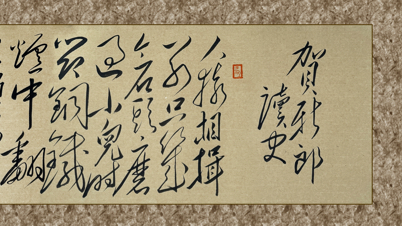 賀新郎
讀史
人猿相揖
别只幾
个石頭磨
过小兒时
節銅鐵
爐中翻